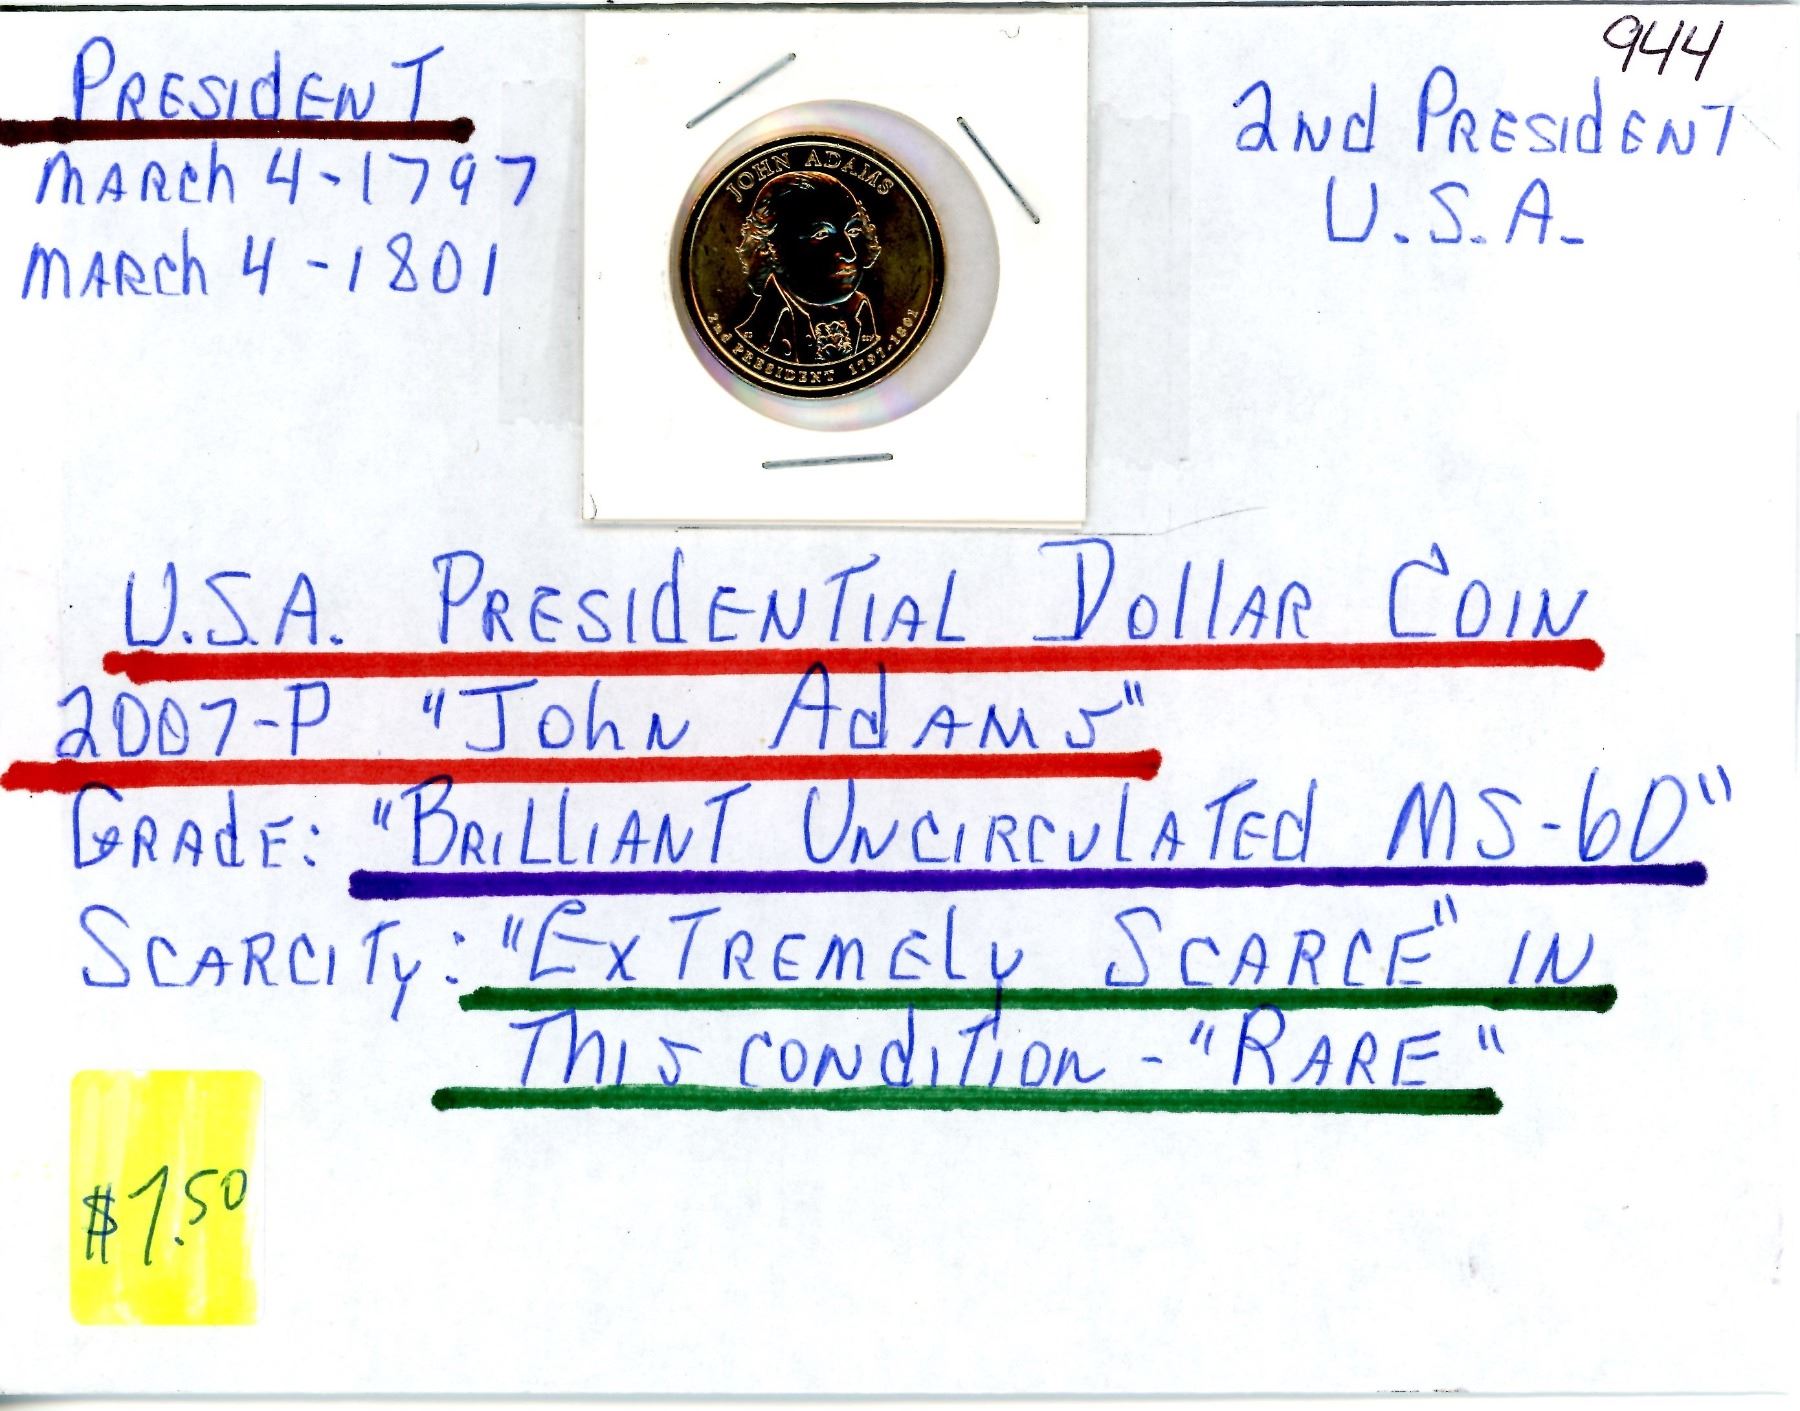 944
PRESIdENT
MARCh 4-1797
MARCh 4-1801
2Nd PRESIdENT
U.S.A.
JOHN ADAMS
2nd PRESIDENT 1797-1801
U.S.A. PRESIdENTIAL DollAR COIN
2007-P "JohN AdAMS"
GRAdE: "BRILLIANT UNCIRCULATEd MS-60"
SCARCITy: "ExTREMELy SCARCE" IN
ThIS CONdITION - "RARE"
$7.50